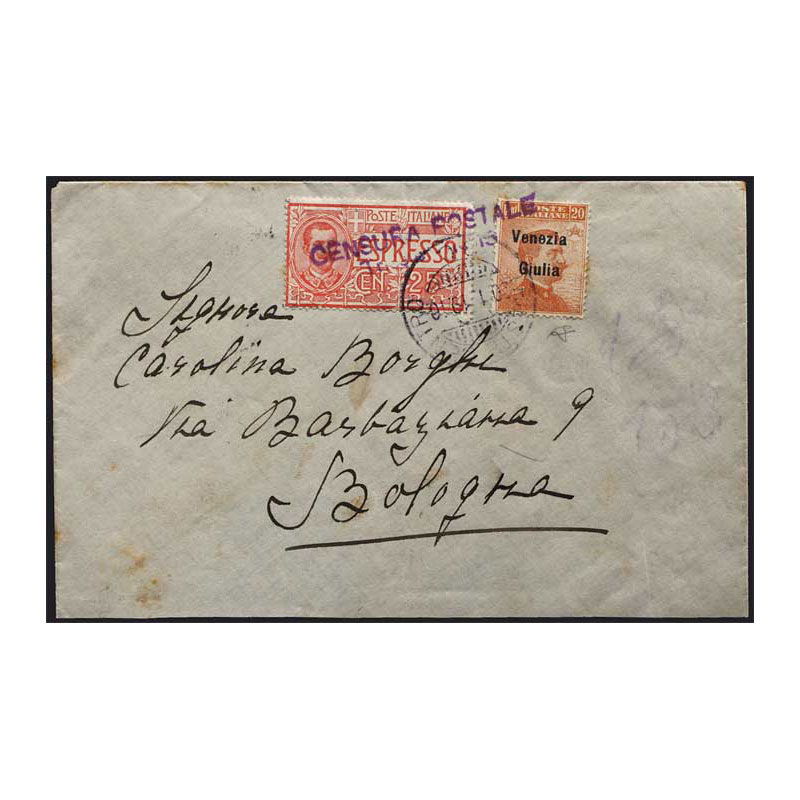 POSTE ITALIANE
ESPRESSO
CEN. 25
CENSURA POSTALE
POSTE ITALIANE 20
Venezia
Giulia
Signora
Carolina Borghi
Via Barbaziana 9
Bologna